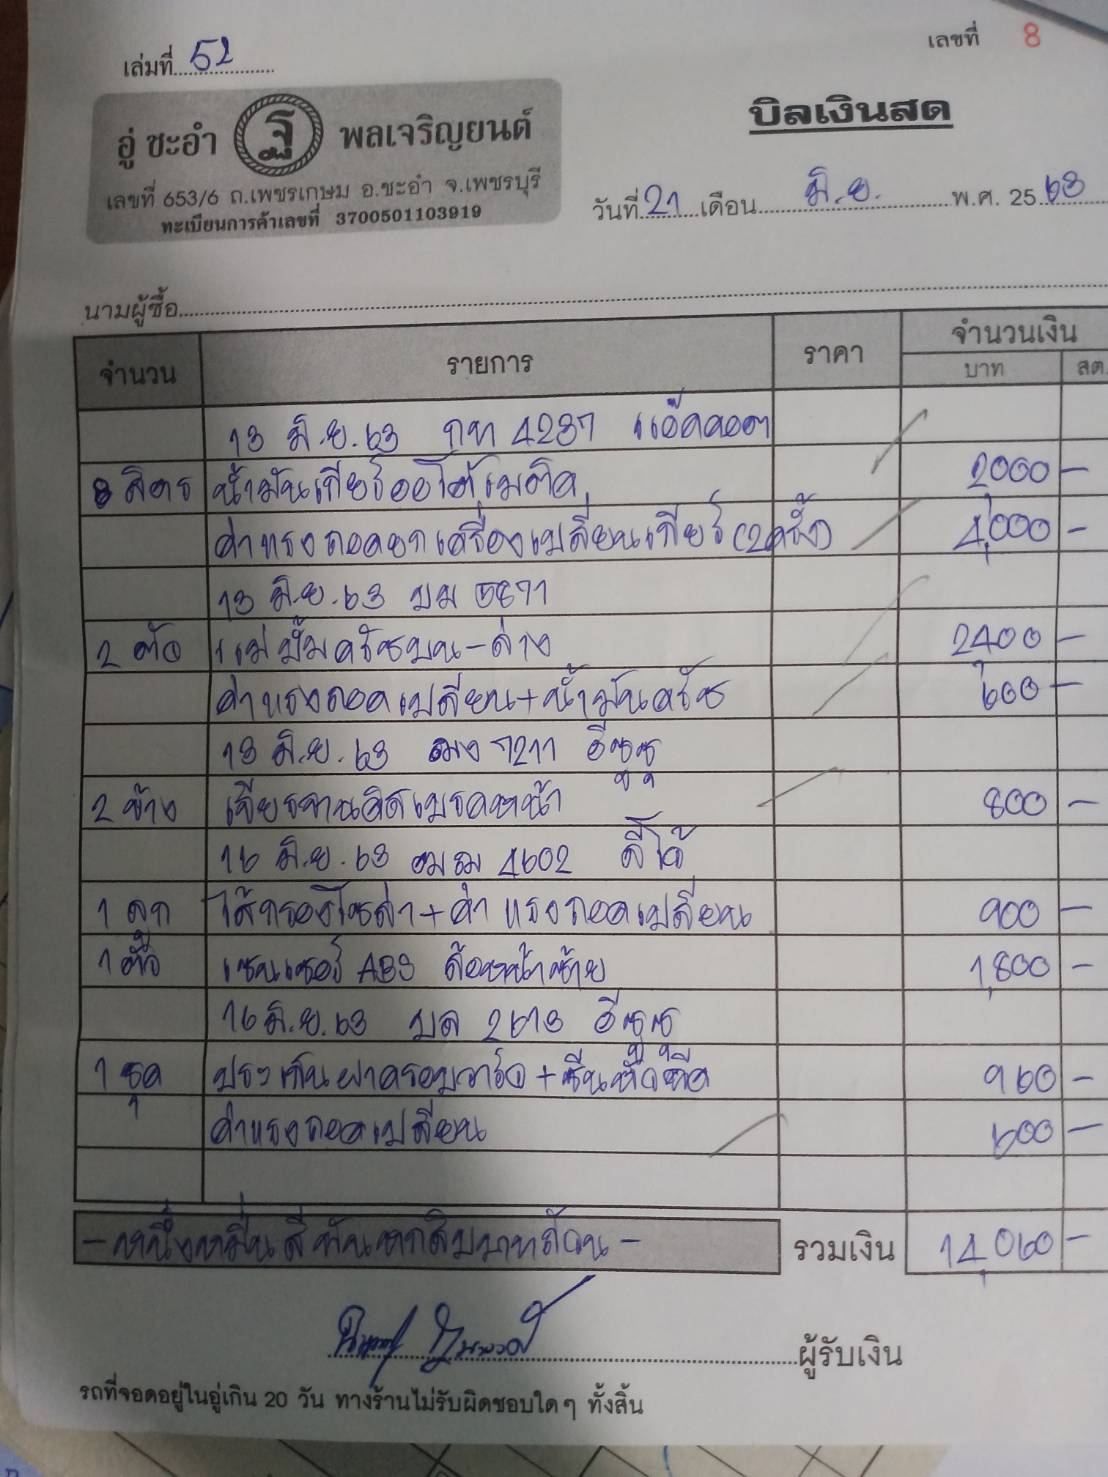 เล่มที่ 52
เลขที่ 8
อู่ ชะอำ ฐ พลเจริญยนต์
เลขที่ 653/6 ถ.เพชรเกษม อ.ชะอำ จ.เพชรบุรี
ทะเบียนการค้าเลขที่ 3700501103919
บิลเงินสด
วันที่ 21 เดือน มิ.ย. พ.ศ. 2563
นามผู้ซื้อ
จำนวน รายการ ราคา จำนวนเงิน
บาท สต.
13 มิ.ย. 63 กท 4237 แอ๊คคอต
8 ลิตร น้ำมันเกียร์ออโต้เมติค 2000 -
ค่าแรงถอดยกเครื่องเปลี่ยนเกียร์ (2ครั้ง) 4,000 -
13 มิ.ย. 63 บม 5871
2 ตัว แม่ปั้มครัชบน-ล่าง 2400 -
ค่าแรงถอดเปลี่ยน+น้ำมันครัช 600 -
13 มิ.ย. 63 7211 อีซูซุ
2 ข้าง เจียรจานดิสเบรคหน้า 800 -
16 มิ.ย. 63 4602 วีโก้
1 ลูก ไส้กรองโซล่า+ค่าแรงถอดเปลี่ยน 900 -
1 ตัว เซนเซอร์ ABS ล้อหน้าซ้าย 1,800 -
16 มิ.ย. 63 บล 2613 อีซูซุ
1 ชุด ปะเก็นฝาครอบวาล์ว+ซีนหัวฉีด 960 -
ค่าแรงถอดเปลี่ยน 600 -
-หนึ่งหมื่นสี่พันหกสิบบาทถ้วน- รวมเงิน 14,060 -
ผู้รับเงิน
รถที่จอดอยู่ในอู่เกิน 20 วัน ทางร้านไม่รับผิดชอบใดๆ ทั้งสิ้น